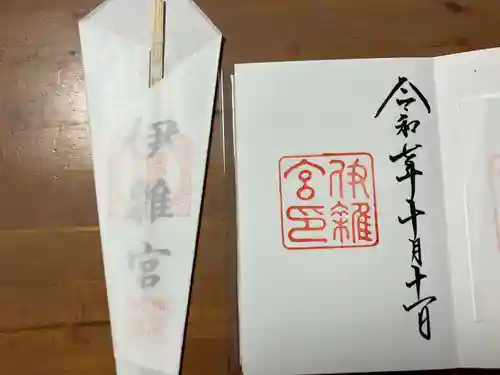 伊雜宮
令和年十月十一日
伊雜
宮印